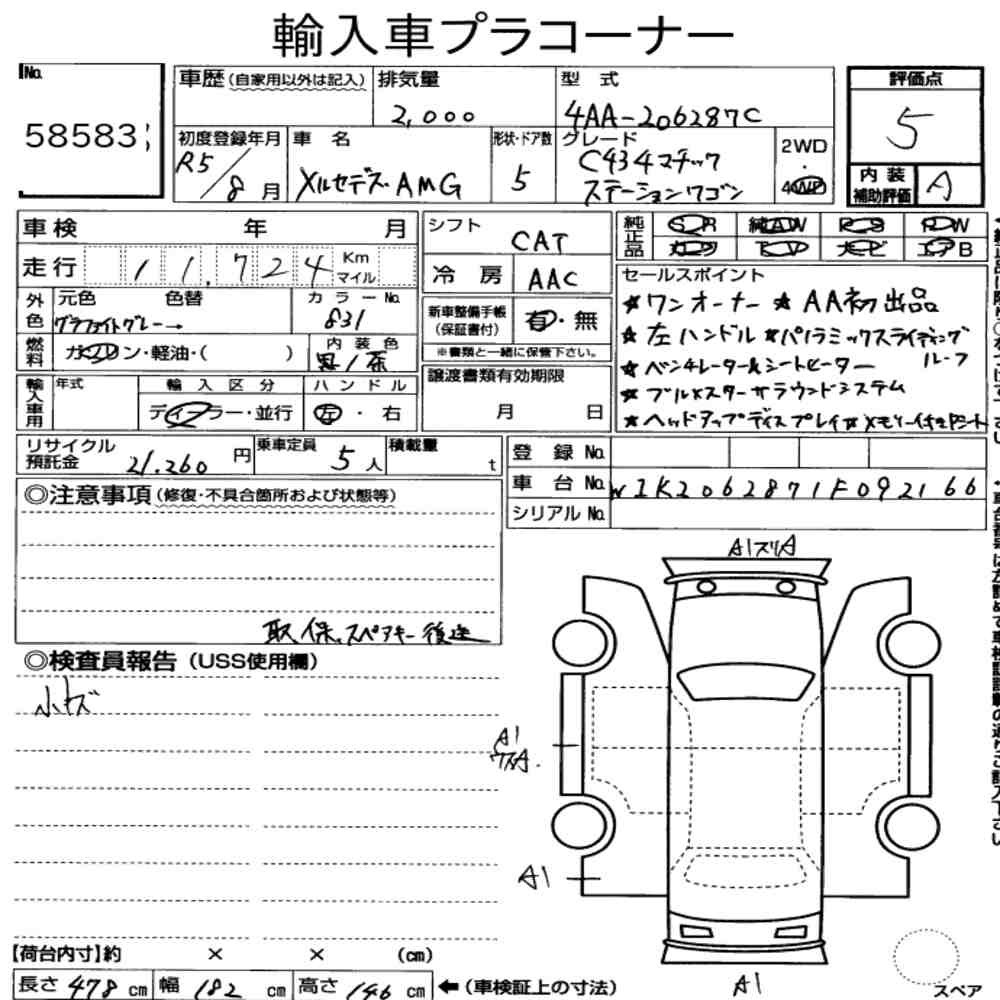 輸入車プラコーナー
No.
58583
車歴 (自家用以外は記入)
排気量
2,000
型式
4AA-206287C
評価点
5
初度登録年月
R5/8月
車名
メルセデスAMG
形状・ドア数
5
グレード
C43 4マチック
ステーションワゴン
2WD
・
4WD
内装
補助評価
A
車検 年 月
走行 11,724 Km
マイル
シフト
CAT
冷房 AAC
純正品 SR 純AW PS PW
カワ TV ナビ エアB
外色
元色 色替
グラファイトグレー→
カラーNo.
831
新車整備手帳
(保証書付)
有・無
※書類と一緒に保管下さい。
セールスポイント
★ワンオーナー ★AA初出品
★左ハンドル ★パノラミックスライディング
ルーフ
★ベンチレーター&シートヒーター
★ブルメスターサラウンドシステム
★ヘッドアップディスプレイ
燃料
ガソリン・軽油・( )
内装色
黒/茶
輸入車用
年式
輸入区分
ディーラー・並行
ハンドル
左・右
譲渡書類有効期限
月 日
リサイクル
預託金
21,260 円
乗車定員
5人
積載量
t
登録No.
車台No. W1K2062871F092166
シリアルNo.
◎注意事項 (修復・不具合箇所および状態等)
取、保、スペアキー後送
◎検査員報告 (USS使用欄)
小キズ
A1スリA
A1
A1
A1
【荷台内寸】約 × × (cm)
長さ 478 cm 幅 182 cm 高さ 146 cm ←(車検証上の寸法)
スペア